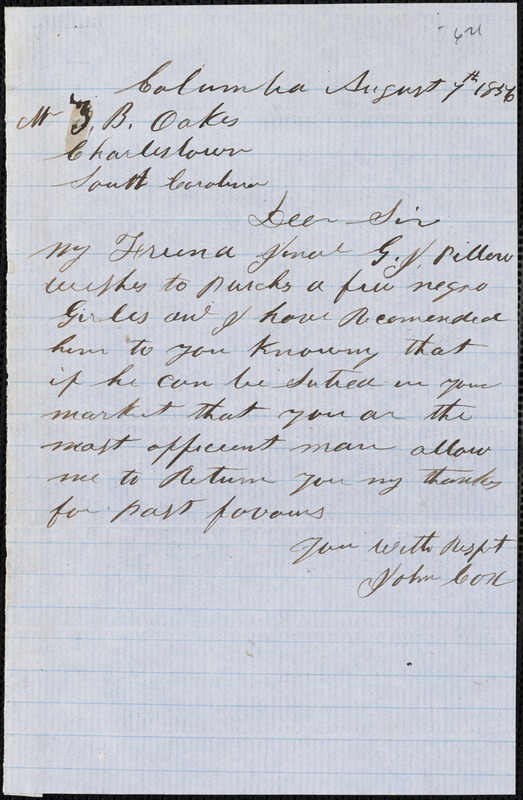 621
Columbia August 7th 1856
Mr Z. B. Oakes
Charlestown
South Carolina
Dear Sir
My Friend Genal G. J. Pillow
wishes to purchs a few negro
Girles and I have Recomended
him to you Knowing that
if he can be Suted in your
market that you ar the
most afficent man allow
me to Return you my thanks
for past favours
Your With Respt
John Cox